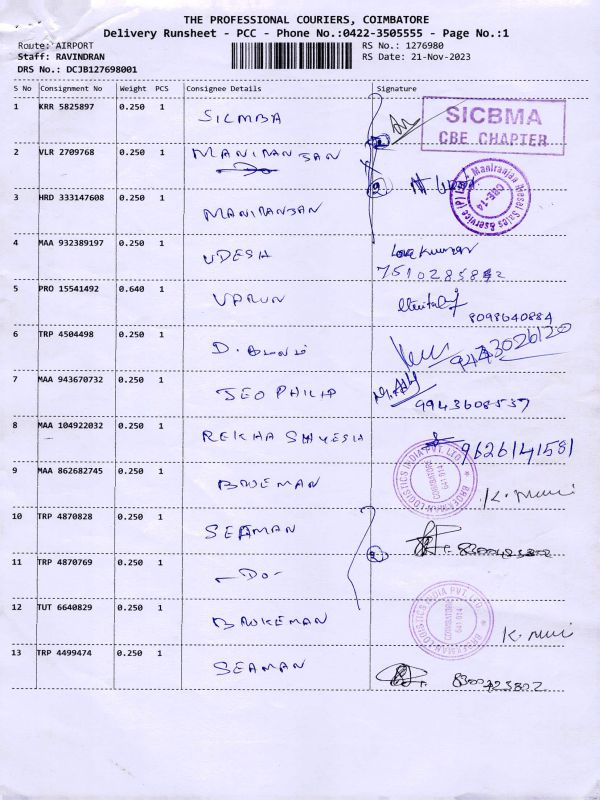 THE PROFESSIONAL COURIERS, COIMBATORE
Delivery Runsheet - PCC - Phone No.:0422-3505555 - Page No.:1
Route: AIRPORT RS No.: 1276980
Staff: RAVINDRAN RS Date: 21-Nov-2023
DRS No.: DCJB127698001
S No Consignment No Weight PCS Consignee Details Signature
1 KRR 5825897 0.250 1 SICMBA SICBMA
CBE CHAPTER
2 VLR 2709768 0.250 1 MANIRANJAN
3 HRD 333147608 0.250 1 MANIRANJAN CBE-14
4 MAA 932389197 0.250 1 UDESH
5 PRO 15541492 0.640 1 VARUN
8098640884
6 TRP 4504498 0.250 1 D. 9443026120
7 MAA 943670732 0.250 1 JEO PHILIP
9943608537
8 MAA 104922032 0.250 1 REKHA 9626141581
9 MAA 862682745 0.250 1 LOGISTICS INDIA PVT. LTD. COIMBATORE 641 014 K. Muni
10 TRP 4870828 0.250 1 SEAMAN
11 TRP 4870769 0.250 1 -DO-
12 TUT 6640829 0.250 1 LOGISTICS INDIA PVT. LTD. COIMBATORE 641 014 K. Muni
13 TRP 4499474 0.250 1 SEAMAN